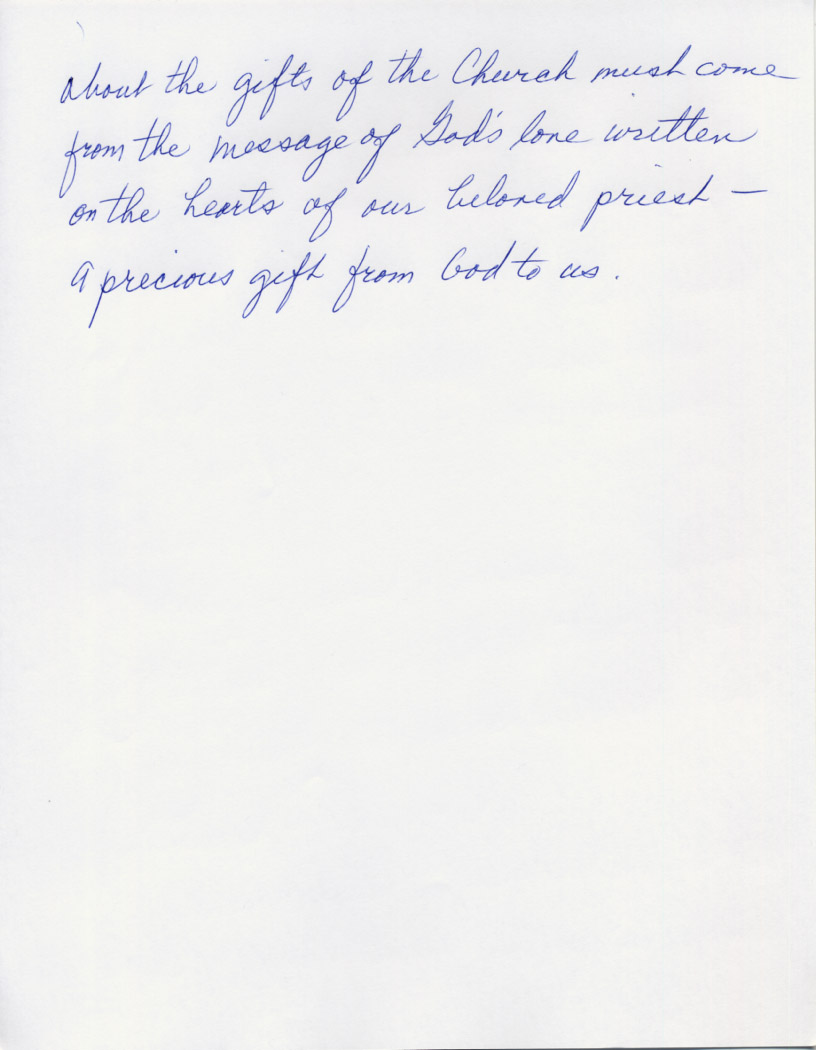 about the gifts of the Church must come
from the message of God's love written
on the hearts of our beloved priest —
a precious gift from God to us.